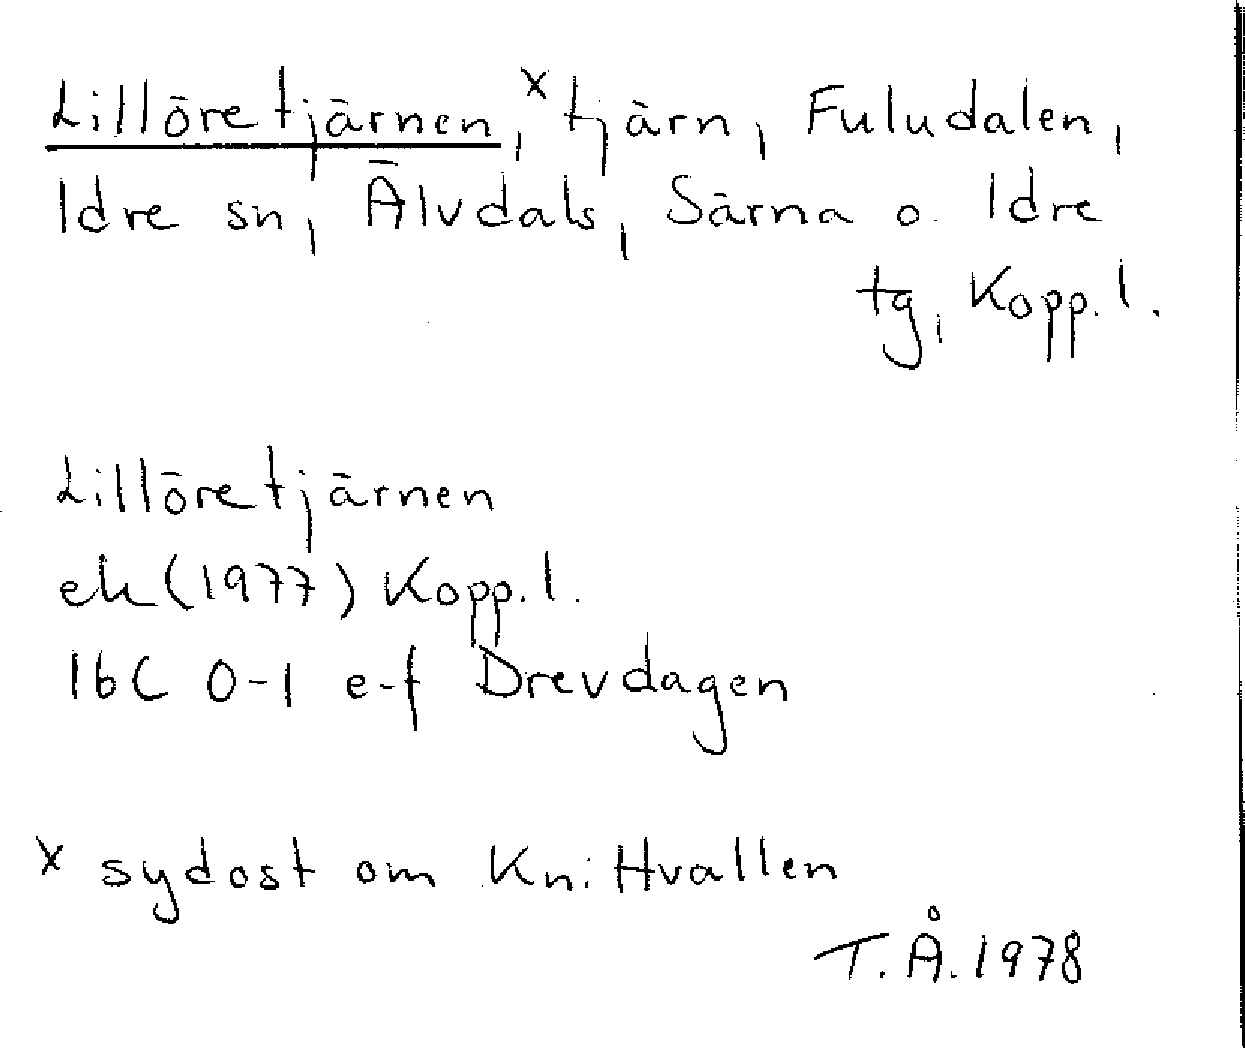 Lillöretjärnen, x tjärn, Fuludalen,
Idre sn, Älvdals, Särna o. Idre
tg, Kopp. l.
Lillöretjärnen
ek (1977) Kopp. l.
16C 0-1 e-f Drevdagen
x sydost om Knittvallen
T.Å. 1978